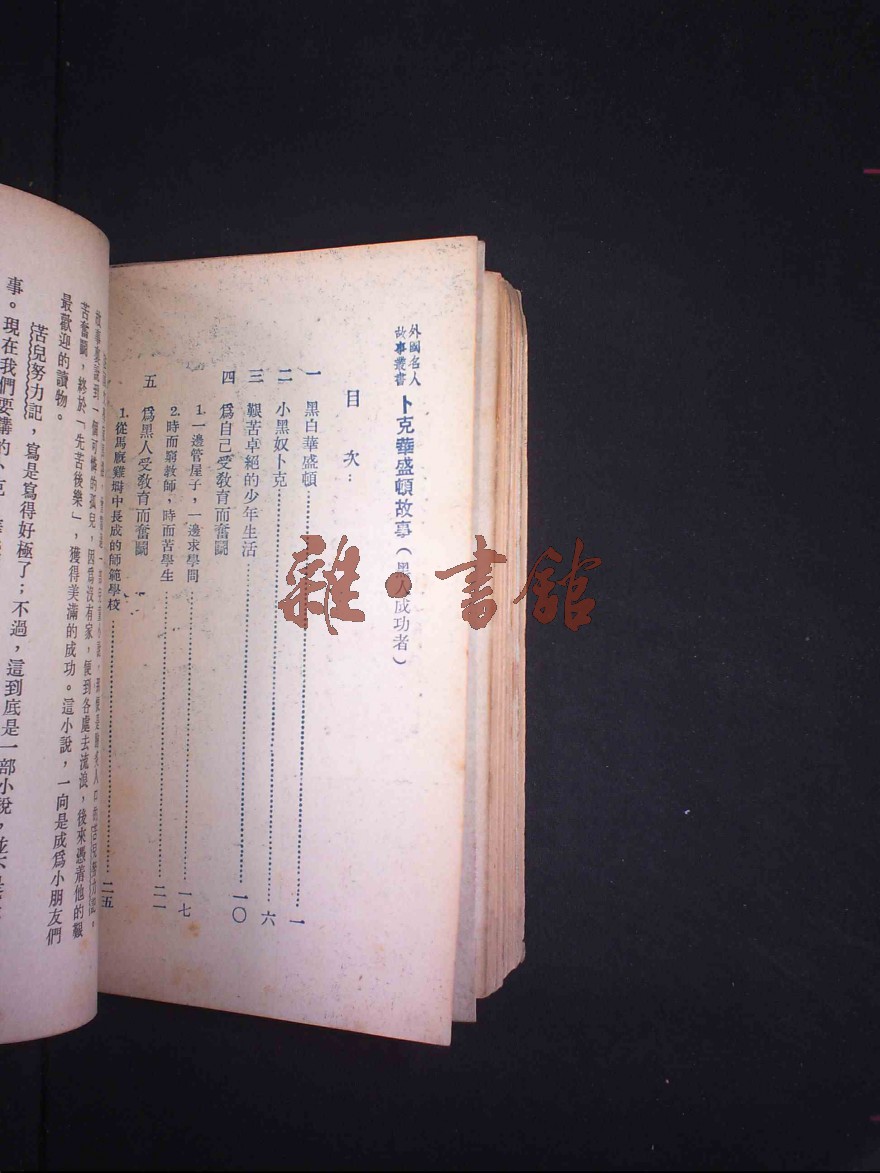 外國名人
故事叢書
卜克華盛頓故事（黑人成功者）
目次：
一 黑白華盛頓……一
二 小黑奴卜克……六
三 艱苦卓絕的少年生活……一〇
四 爲自己受教育而奮鬬
1. 一邊管屋子，一邊求學問……一七
2. 時而窮教師，時而苦學生……二一
五 爲黑人受教育而奮鬬
1. 從馬廐雞塒中長成的師範學校……二五
故事裏說到一個可憐的孤兒，因爲沒有家，便到各處去流浪，後來憑着他的艱
苦奮鬬，終於「先苦後樂」，獲得美滿的成功。這小說，一向是成爲小朋友們
最歡迎的讀物。
苦兒努力記，寫是寫得好極了；不過，這到底是一部小說，並不是
事。現在我們要講的卜克
雜·書館